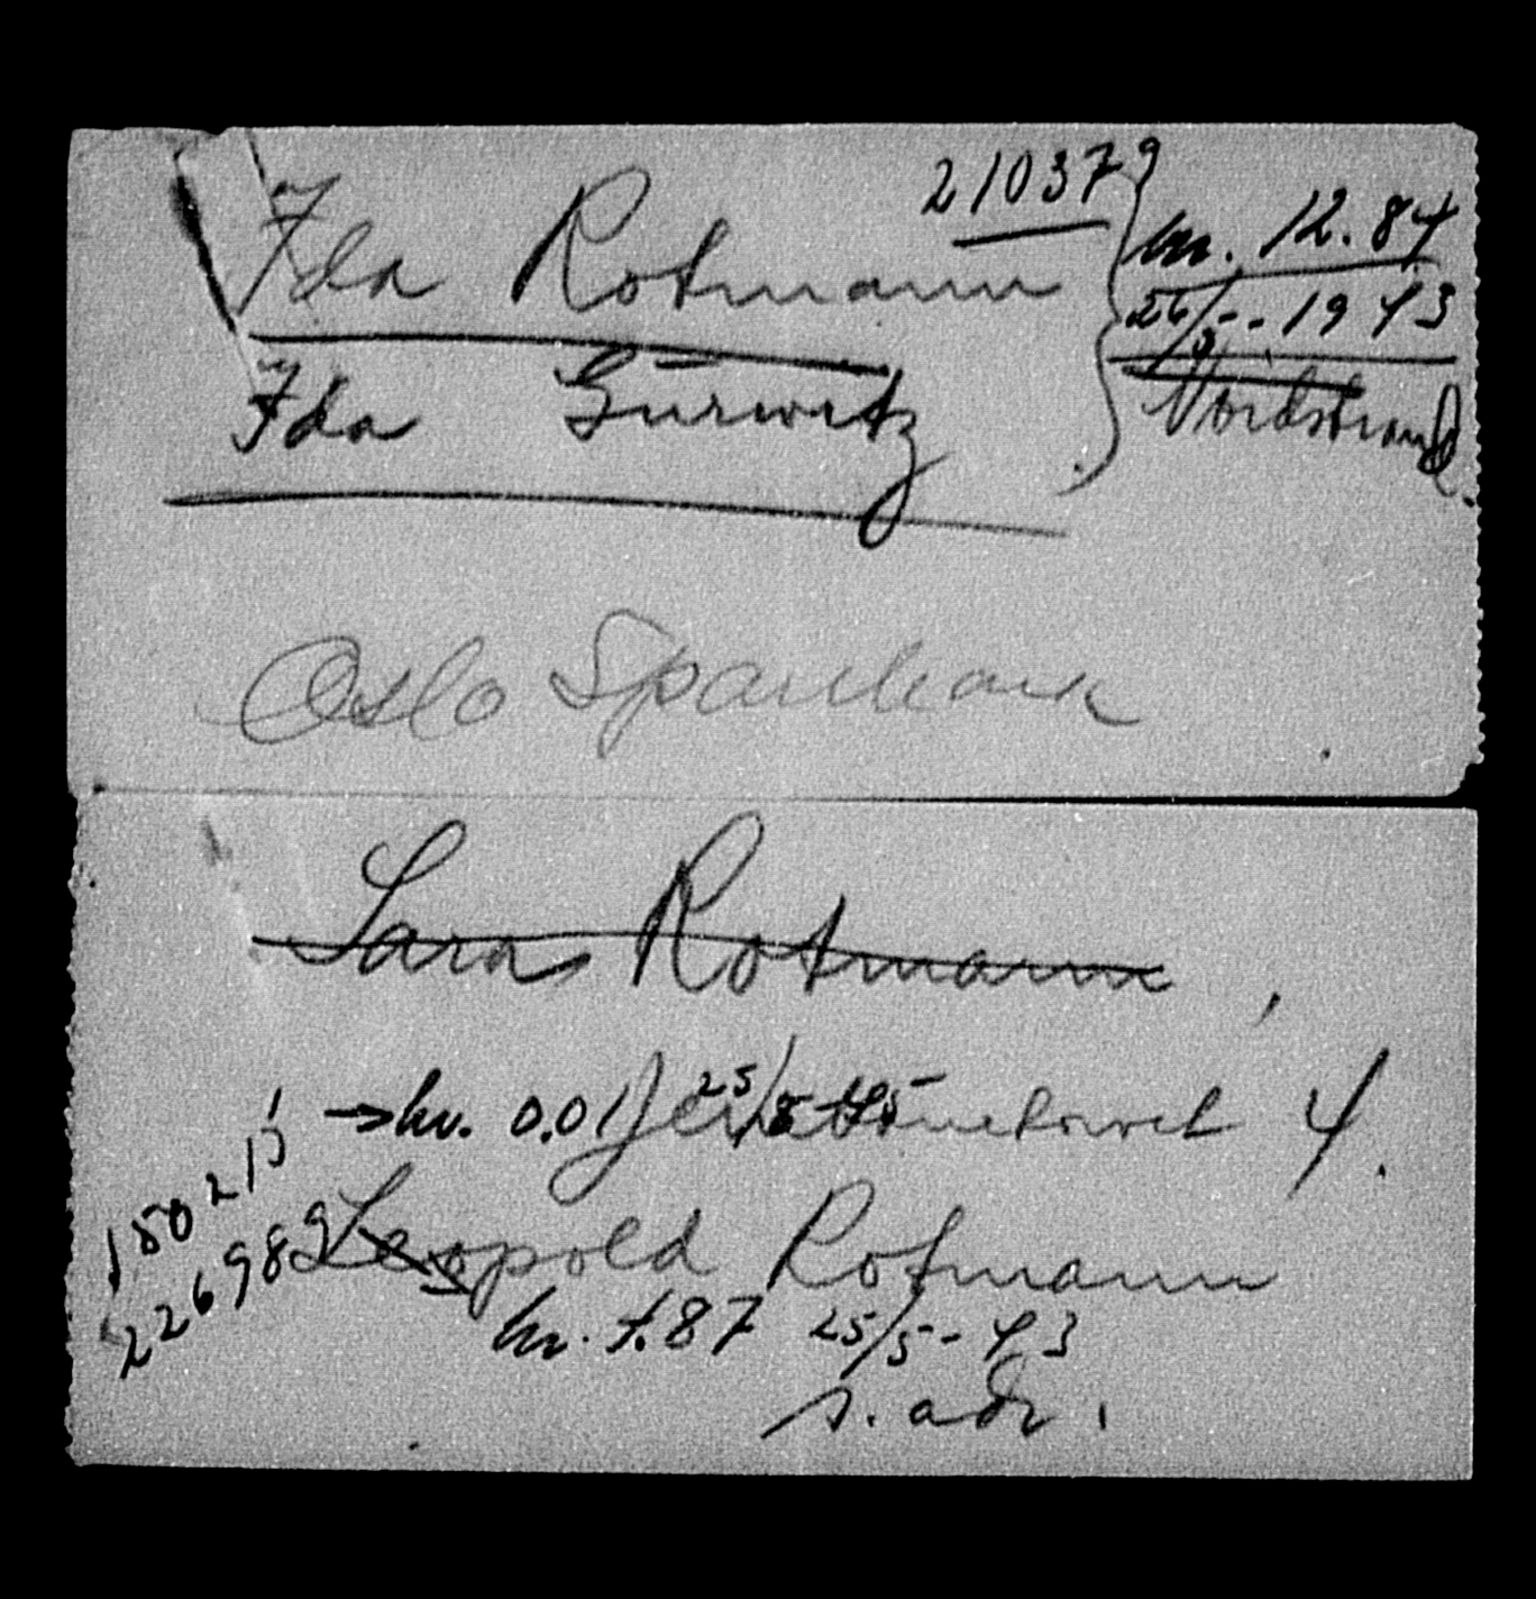 210379
Ida Rotmann
kr. 12.84
26/5-1943
Ida Gurwitz
Nordstrand.
Oslo Sparebank
Sara Rotmann
→ kr. 0.01 25/5 4.
Leopold Rotmann
226989
kr. 7.87 25/5-43
s. adr.